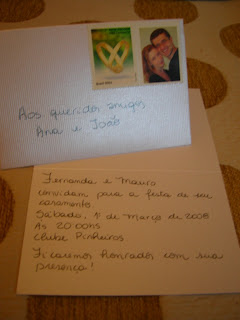 Aos queridos amigos
Ana e João
Fernanda e Mauro
convidam para a festa de seu
casamento.
Sábado, 1º de Março de 2008
As 20:00hs
Clube Pinheiros.
Ficaremos honrados com sua
presença!